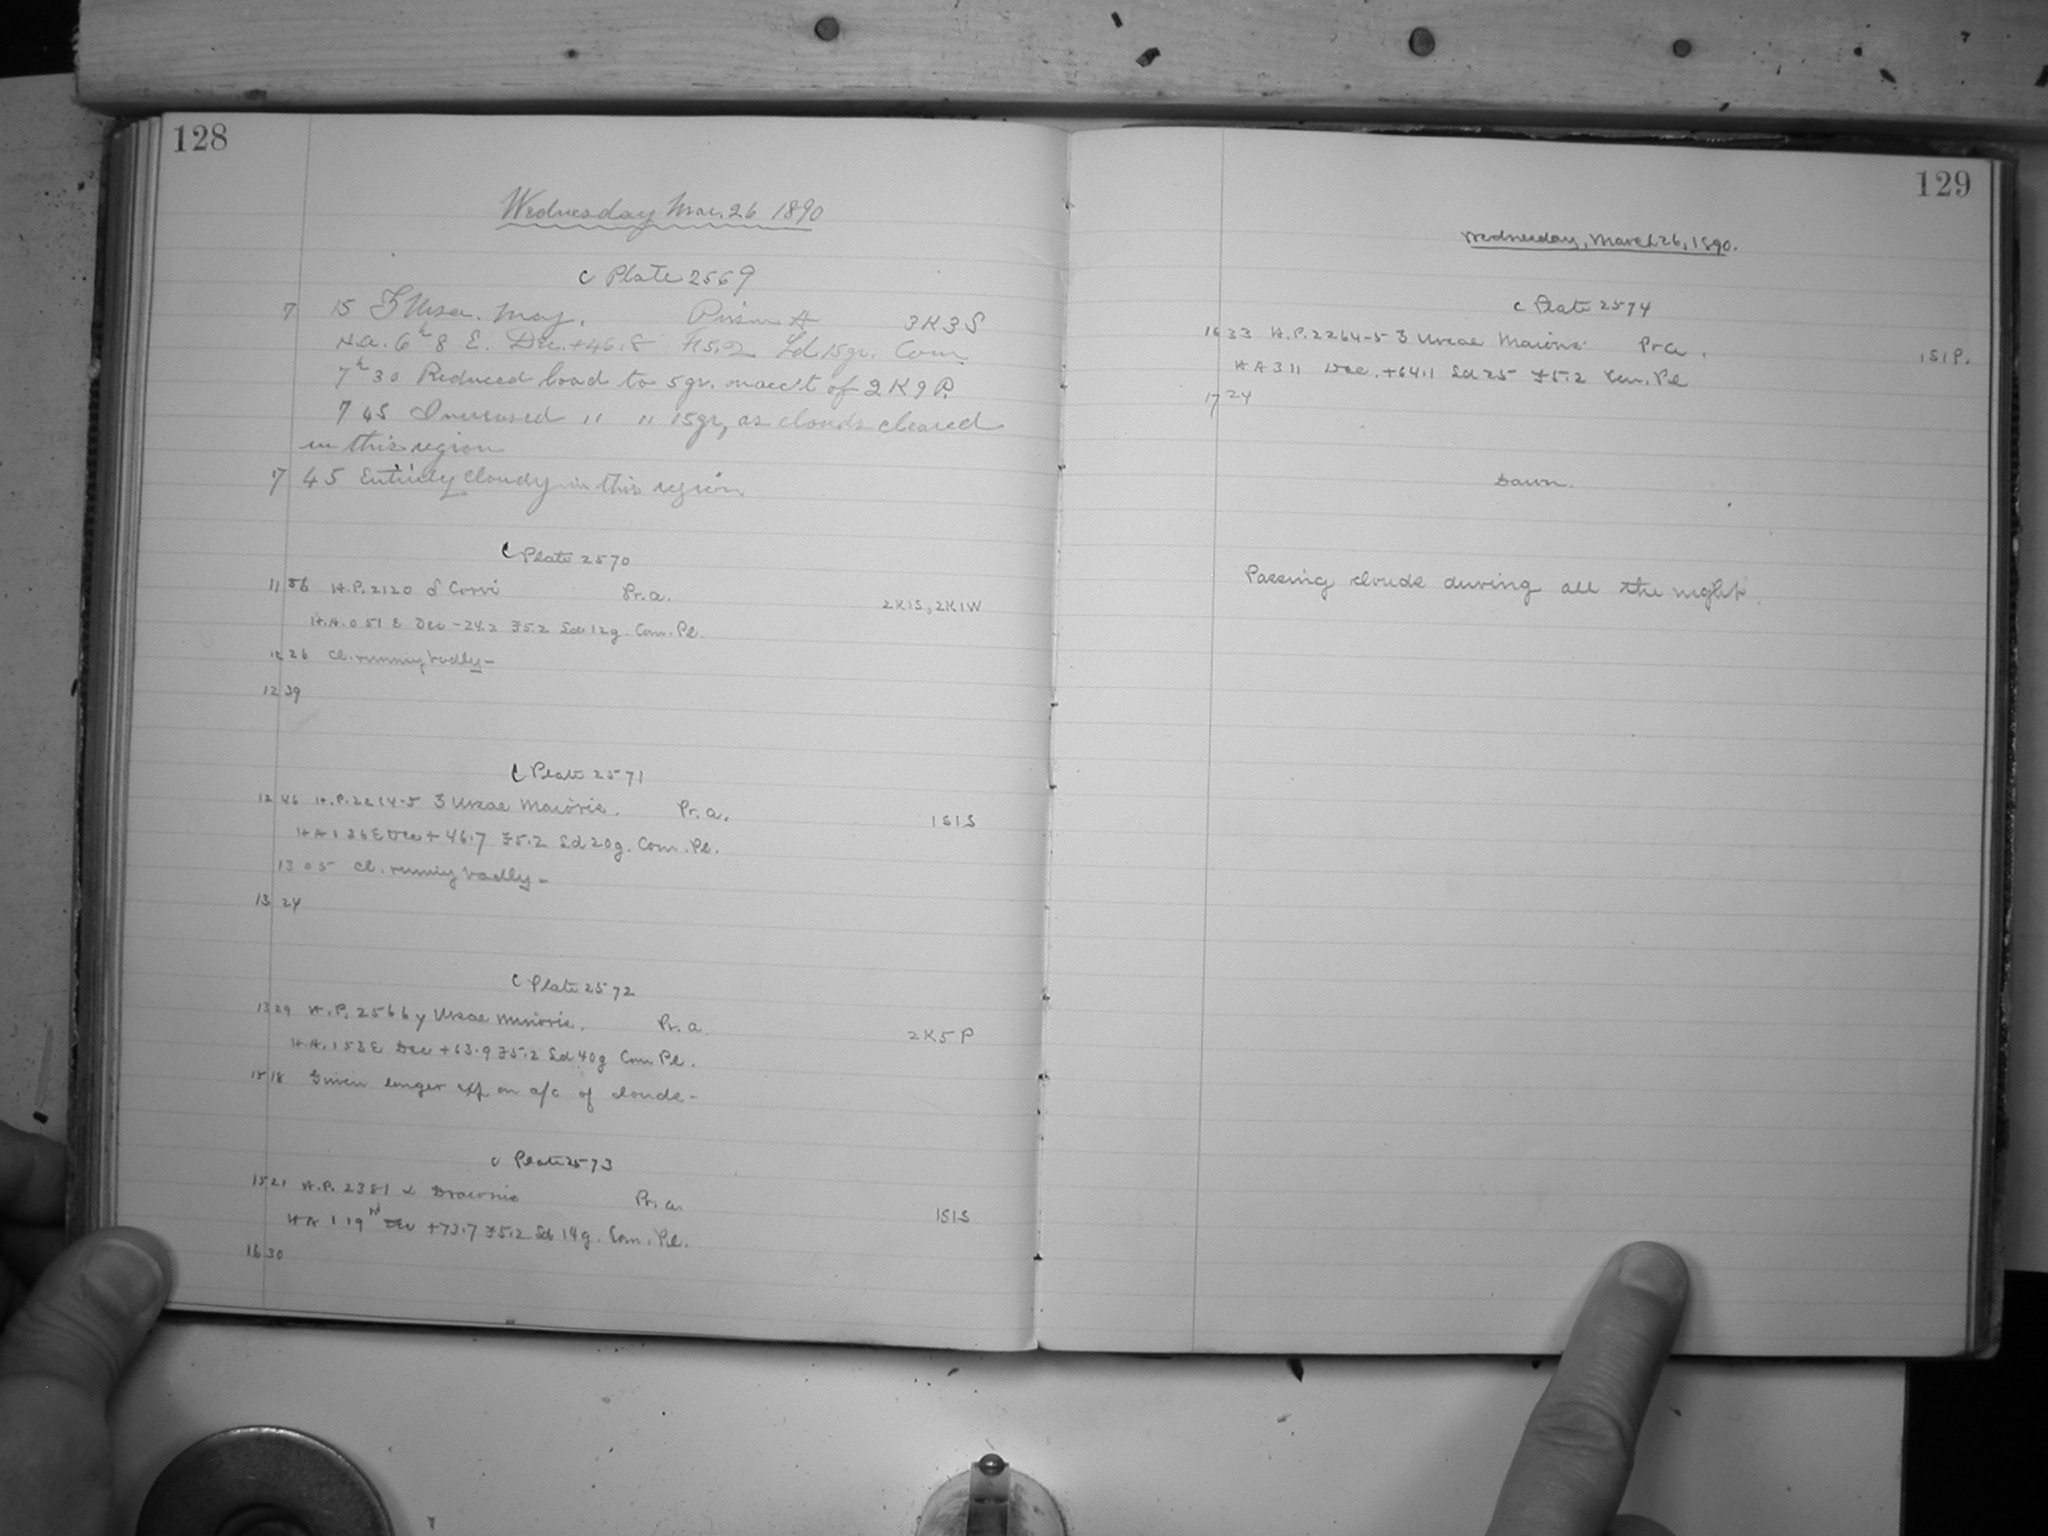 128
Wednesday Mar. 26 1890
C Plate 2569
7 15 Ursa. Maj. Prism A 3K3S
H.A. 6h 8 E. Dec. +46.8 F5.2 Ld 15gr. Com
7h 30 Reduced load to 5gr. on acc't of 2K9P.
7 45 Increased " " 15gr, as clouds cleared
in this region
7 45 Entirely cloudy in this region.
C Plate 2570
11 56 H.P. 2120 δ Corvi Pr. a. 2K1S, 2K1W
H.A. 0 51 E Dec -24.2 F5.2 Ld 12g. Com. Pl.
12 26 Cl. running badly -
12 39
C Plate 2571
12 46 H.P. 2214-5 ζ Ursae Maioris. Pr. a. 1S1S
HA 1 26 E Dec + 46.7 F5.2 Ld 20g. Com. Pl.
13 05 Cl. running badly -
13 24
C Plate 2572
13 29 H.P. 2566 γ Ursae Minoris. Pr. a. 2K5P
H.A. 1 53 E Dec +63.9 F5.2 Ld 40g Com Pl.
15 18 Given longer exp on a/c of clouds -
C Plate 2573
15 21 H.P. 2381 α Draconis Pr. a. 1S1S
HA 1 19 W Dec +73.7 F5.2 Ld 14g. Com. Pl.
16 30
129
Wednesday, March 26, 1890.
C Plate 2574
16 33 H.P. 2264-5 ζ Ursae Maioris Pr a. 1S1P.
HA 3 11 Dec. +64.1 Ld 25 F5.2 Com. Pl
17 24
Dawn.
Passing clouds during all the night.